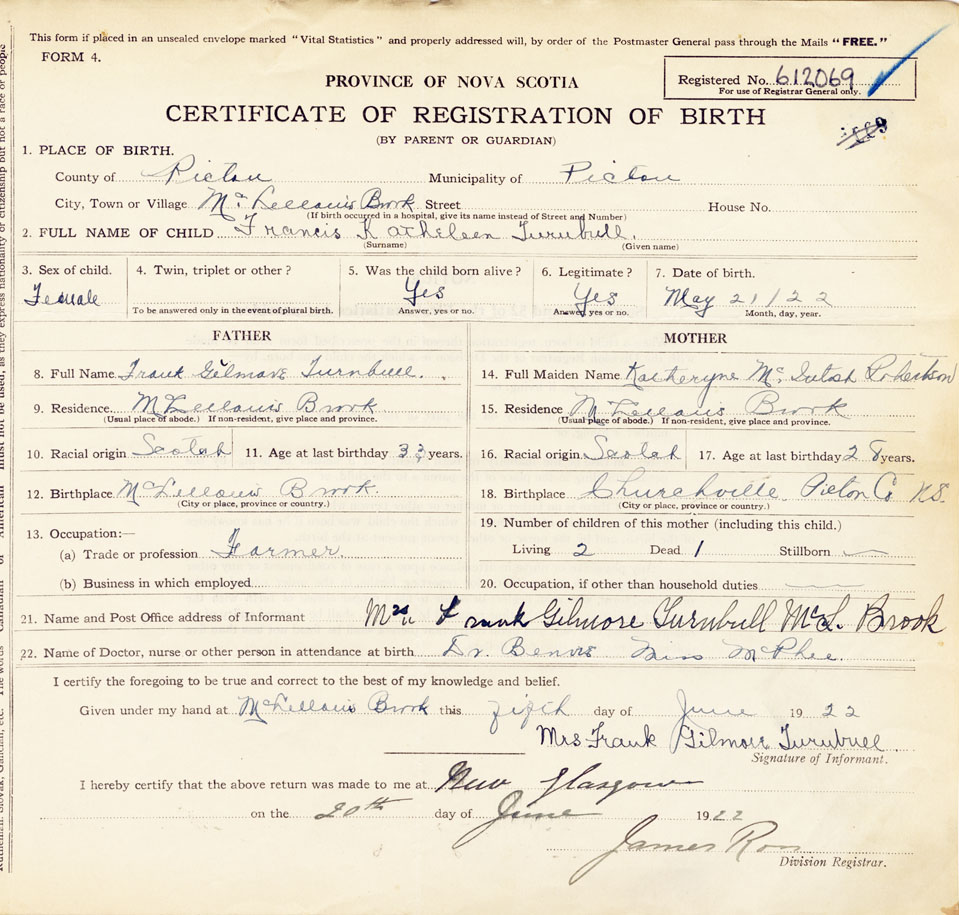 This form if placed in an unsealed envelope marked "Vital Statistics" and properly addressed will, by order of the Postmaster General pass through the Mails "FREE."
FORM 4.
Registered No. 612069
For use of Registrar General only.
PROVINCE OF NOVA SCOTIA
CERTIFICATE OF REGISTRATION OF BIRTH
(BY PARENT OR GUARDIAN)
1. PLACE OF BIRTH.
County of Pictou Municipality of Pictou
City, Town or Village McLellans Brook Street House No.
(If birth occurred in a hospital, give its name instead of Street and Number)
2. FULL NAME OF CHILD Francis Katheleen Turnbull.
(Surname) (Given name)
3. Sex of child. 4. Twin, triplet or other? 5. Was the child born alive? 6. Legitimate? 7. Date of birth.
Female Yes Yes May 21/22
To be answered only in the event of plural birth. Answer, yes or no. Answer, yes or no. Month, day, year.
FATHER MOTHER
8. Full Name Frank Gilmore Turnbull. 14. Full Maiden Name Katheryne McIntosh Robertson
9. Residence McLellans Brook 15. Residence McLellans Brook
(Usual place of abode.) If non-resident, give place and province. (Usual place of abode.) If non-resident, give place and province.
10. Racial origin Scotch 11. Age at last birthday 33 years. 16. Racial origin Scotch 17. Age at last birthday 28 years.
12. Birthplace McLellans Brook. 18. Birthplace Churchville Pictou Co N.S.
(City or place, province or country.) (City or place, province or country.)
13. Occupation:— 19. Number of children of this mother (including this child.)
(a) Trade or profession Farmer. Living 2 Dead 1 Stillborn —
(b) Business in which employed 20. Occupation, if other than household duties —
21. Name and Post Office address of Informant Mrs Frank Gilmore Turnbull McL. Brook
22. Name of Doctor, nurse or other person in attendance at birth Dr. Benvie Miss McPhee.
I certify the foregoing to be true and correct to the best of my knowledge and belief.
Given under my hand at McLellans Brook this fifth day of June 1922
Mrs Frank Gilmore Turnbull
Signature of Informant.
I hereby certify that the above return was made to me at New Glasgow
on the 20th day of June 1922
James Ross
Division Registrar.